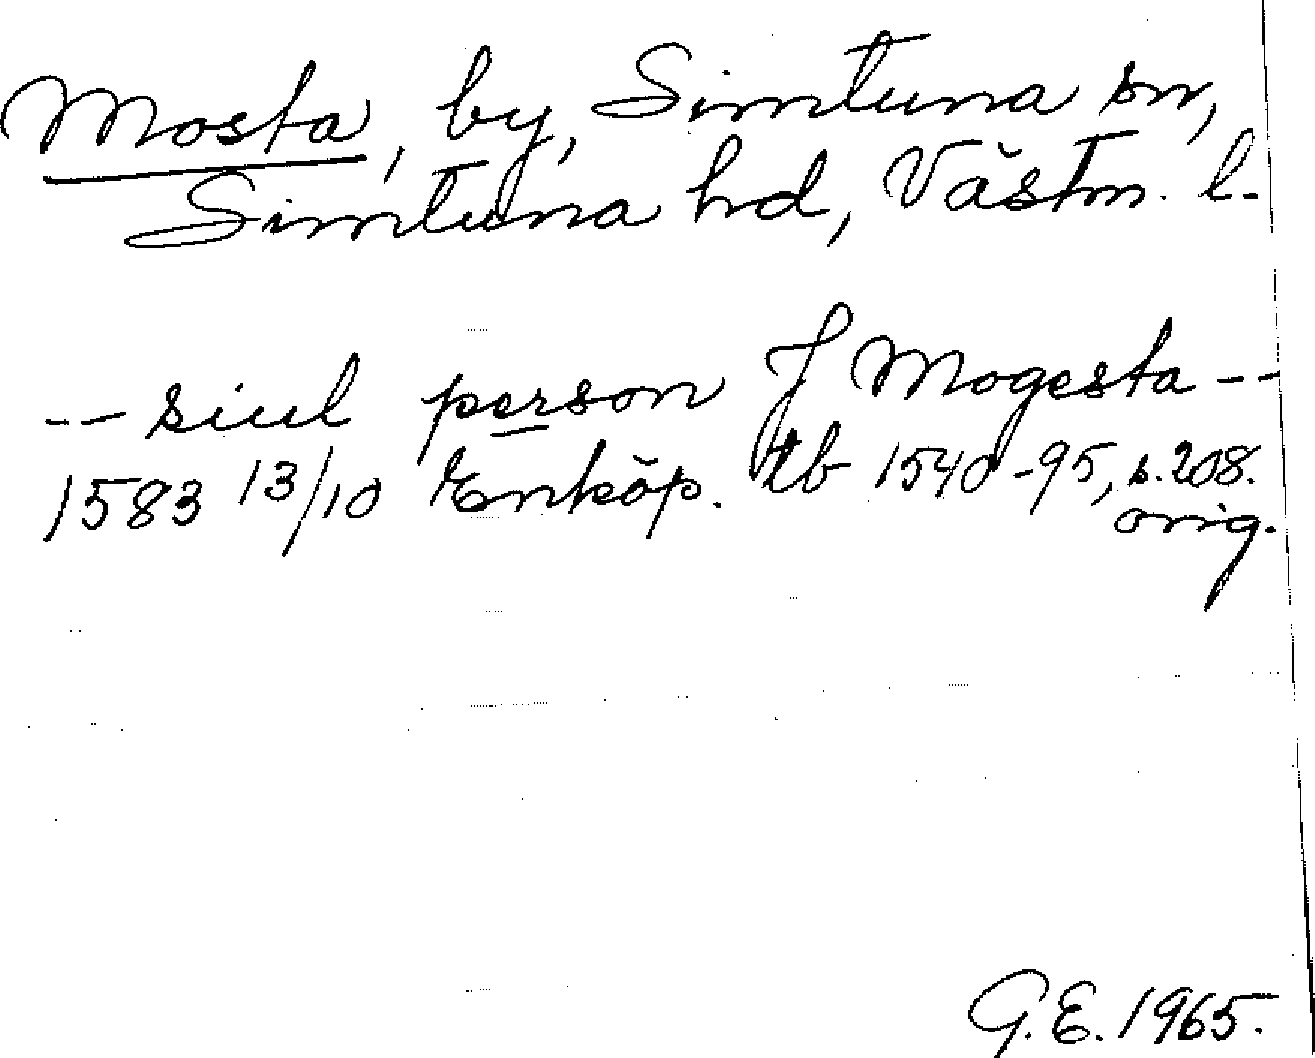 Mosta, by, Simtuna sn,
Simtuna hd, Västm. l.
-- siul person J Mogesta --
1583 13/10 Enköp. tb 1540-95, s. 208.
orig.
G.E. 1965.